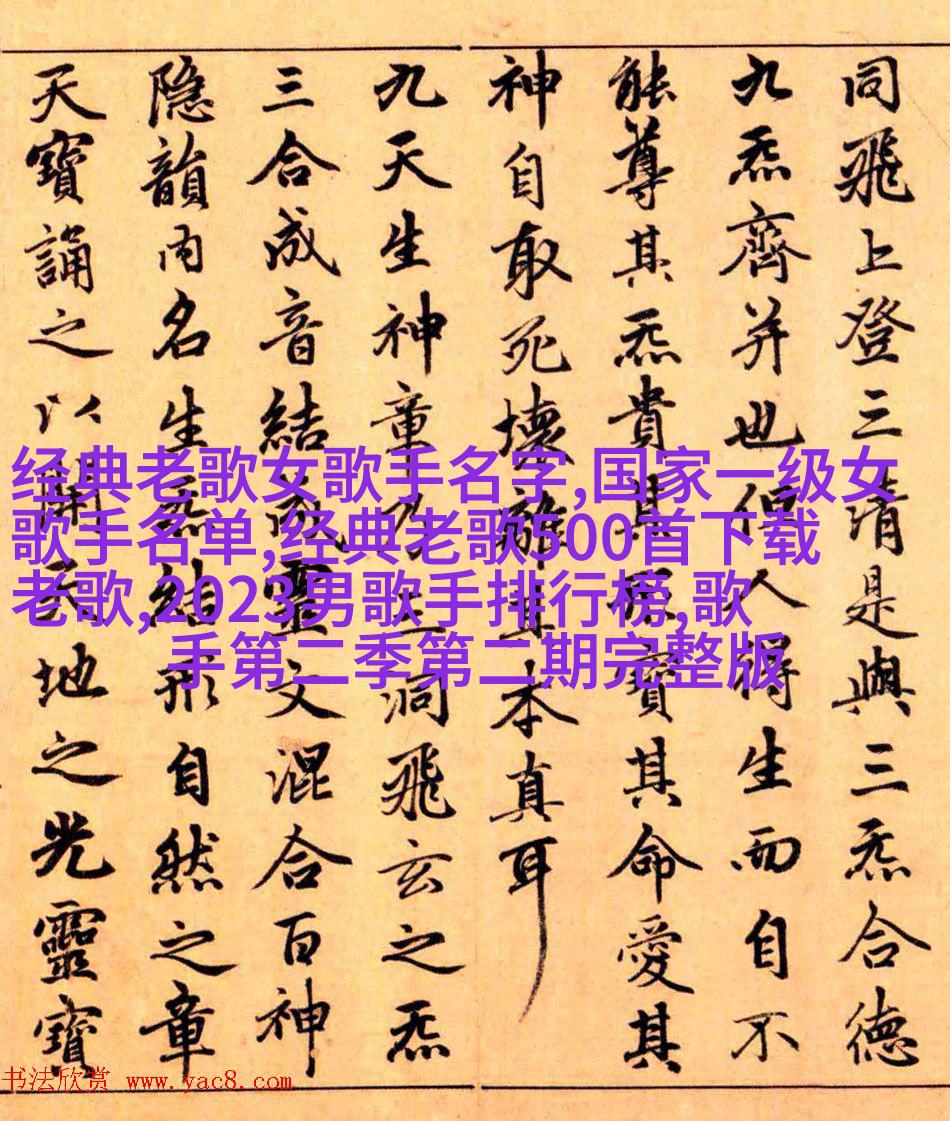 同飛上登三清是與三炁合德
九炁齊并也但人得生而自不
能尊其炁貴其形寶其命愛其
神自取死壞離其本真耳
九天生神章乃三洞飛玄之炁
三合成音結成靈文混合百神
隱韻内名生炁結形自然之章
天寶誦之以開天地之光靈寶
经典老歌女歌手名字,国家一级女
歌手名单,经典老歌500首下载
老歌,2023男歌手排行榜,歌
手第二季第二期完整版
书法欣赏 www.yac8.com